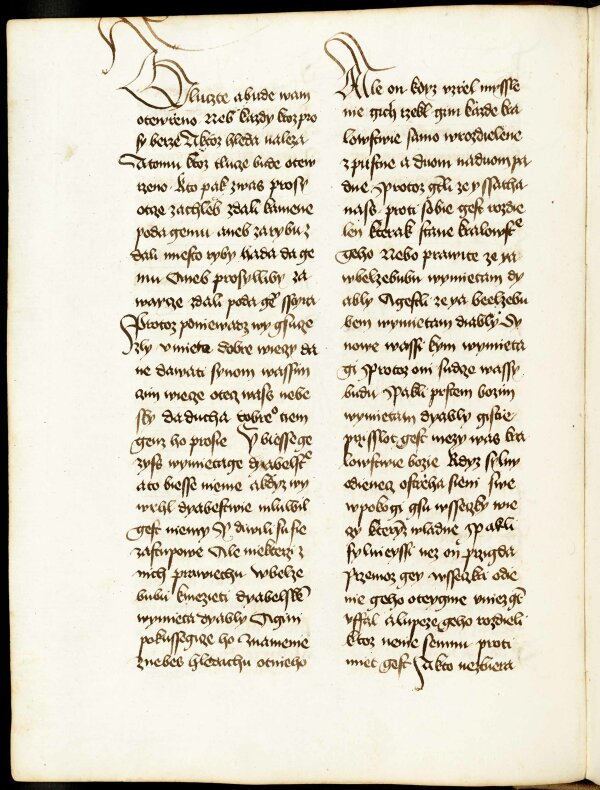 Tluczte a bude wam
otewrzeno Neb kazdy ktoz pro
sy berze A ktoz hleda naleza
A tomu ktoz tluze bude otew
rzeno Kto pak zwas prosy
otcze zachleb zdali kamene
poda gemu aneb zarybu z
dali miesto ryby hada da ge
mu Aneb prosylliby za
wayce zdali poda ge sstira
Protoz poniewacz wy gsucze
zly vmiete dobre wiecy da
ne dawati synom wassim
czim wiecze otecz wass nebe
sky da ducha dobreo tiem
genz ho prosie Y biesse ge
zyss wymietage dyabelstwo
a to biesse nieme a kdyz wy
wrhl dyabelstwie mluwil
gest niemy Y diwili su sie
zastupowe Ale niekterzi z
nich prawiechu w belze
bubu kniezeti dyabelskem
wymieta dyably A gini
pokussegicze ho znamenie
znebes hledachu otnieho
Ale on kdyz vzrel myssle
nie gich rzekl gim kazde kra
lowstwie samo wrozdielene
zpustne a duom naduom pa
dne Protoz gestli ze y ssatha
nass proti sobie gest rozdie
len kterak stane kralowstwe
geho Nebo prawite ze ya
w belzebubu wymietam dy
ably A gestli ze ya beelzebu
bem wymietam diably Sy
nowe wassi kym wymieta
gi Protoz oni sudcze wassy
budu Pakli prstem bozim
wymietam dyably gistie
prisslot gest mezy was kra
lowstwie bozie Kdyz sylny
odieneg ostrieha sieni swe
w pokogi gsu wsseczky wie
cy kterymz wladne Pakli
sylnieyssi nez on przigda
przemoz gey wsseczka odie
nie geho oteygme vniez gest
vffal a lupeze geho rozdieli
Ktoz nenie semnu proti
mnet gest A kto nezbiera